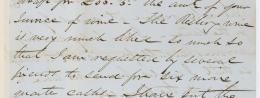 for 200.5. the amt of your
Invoice of wine. The Riesling wine
is very much liked so much so
that I am requested by several
friends to send for six more
quarter casks. I have but the